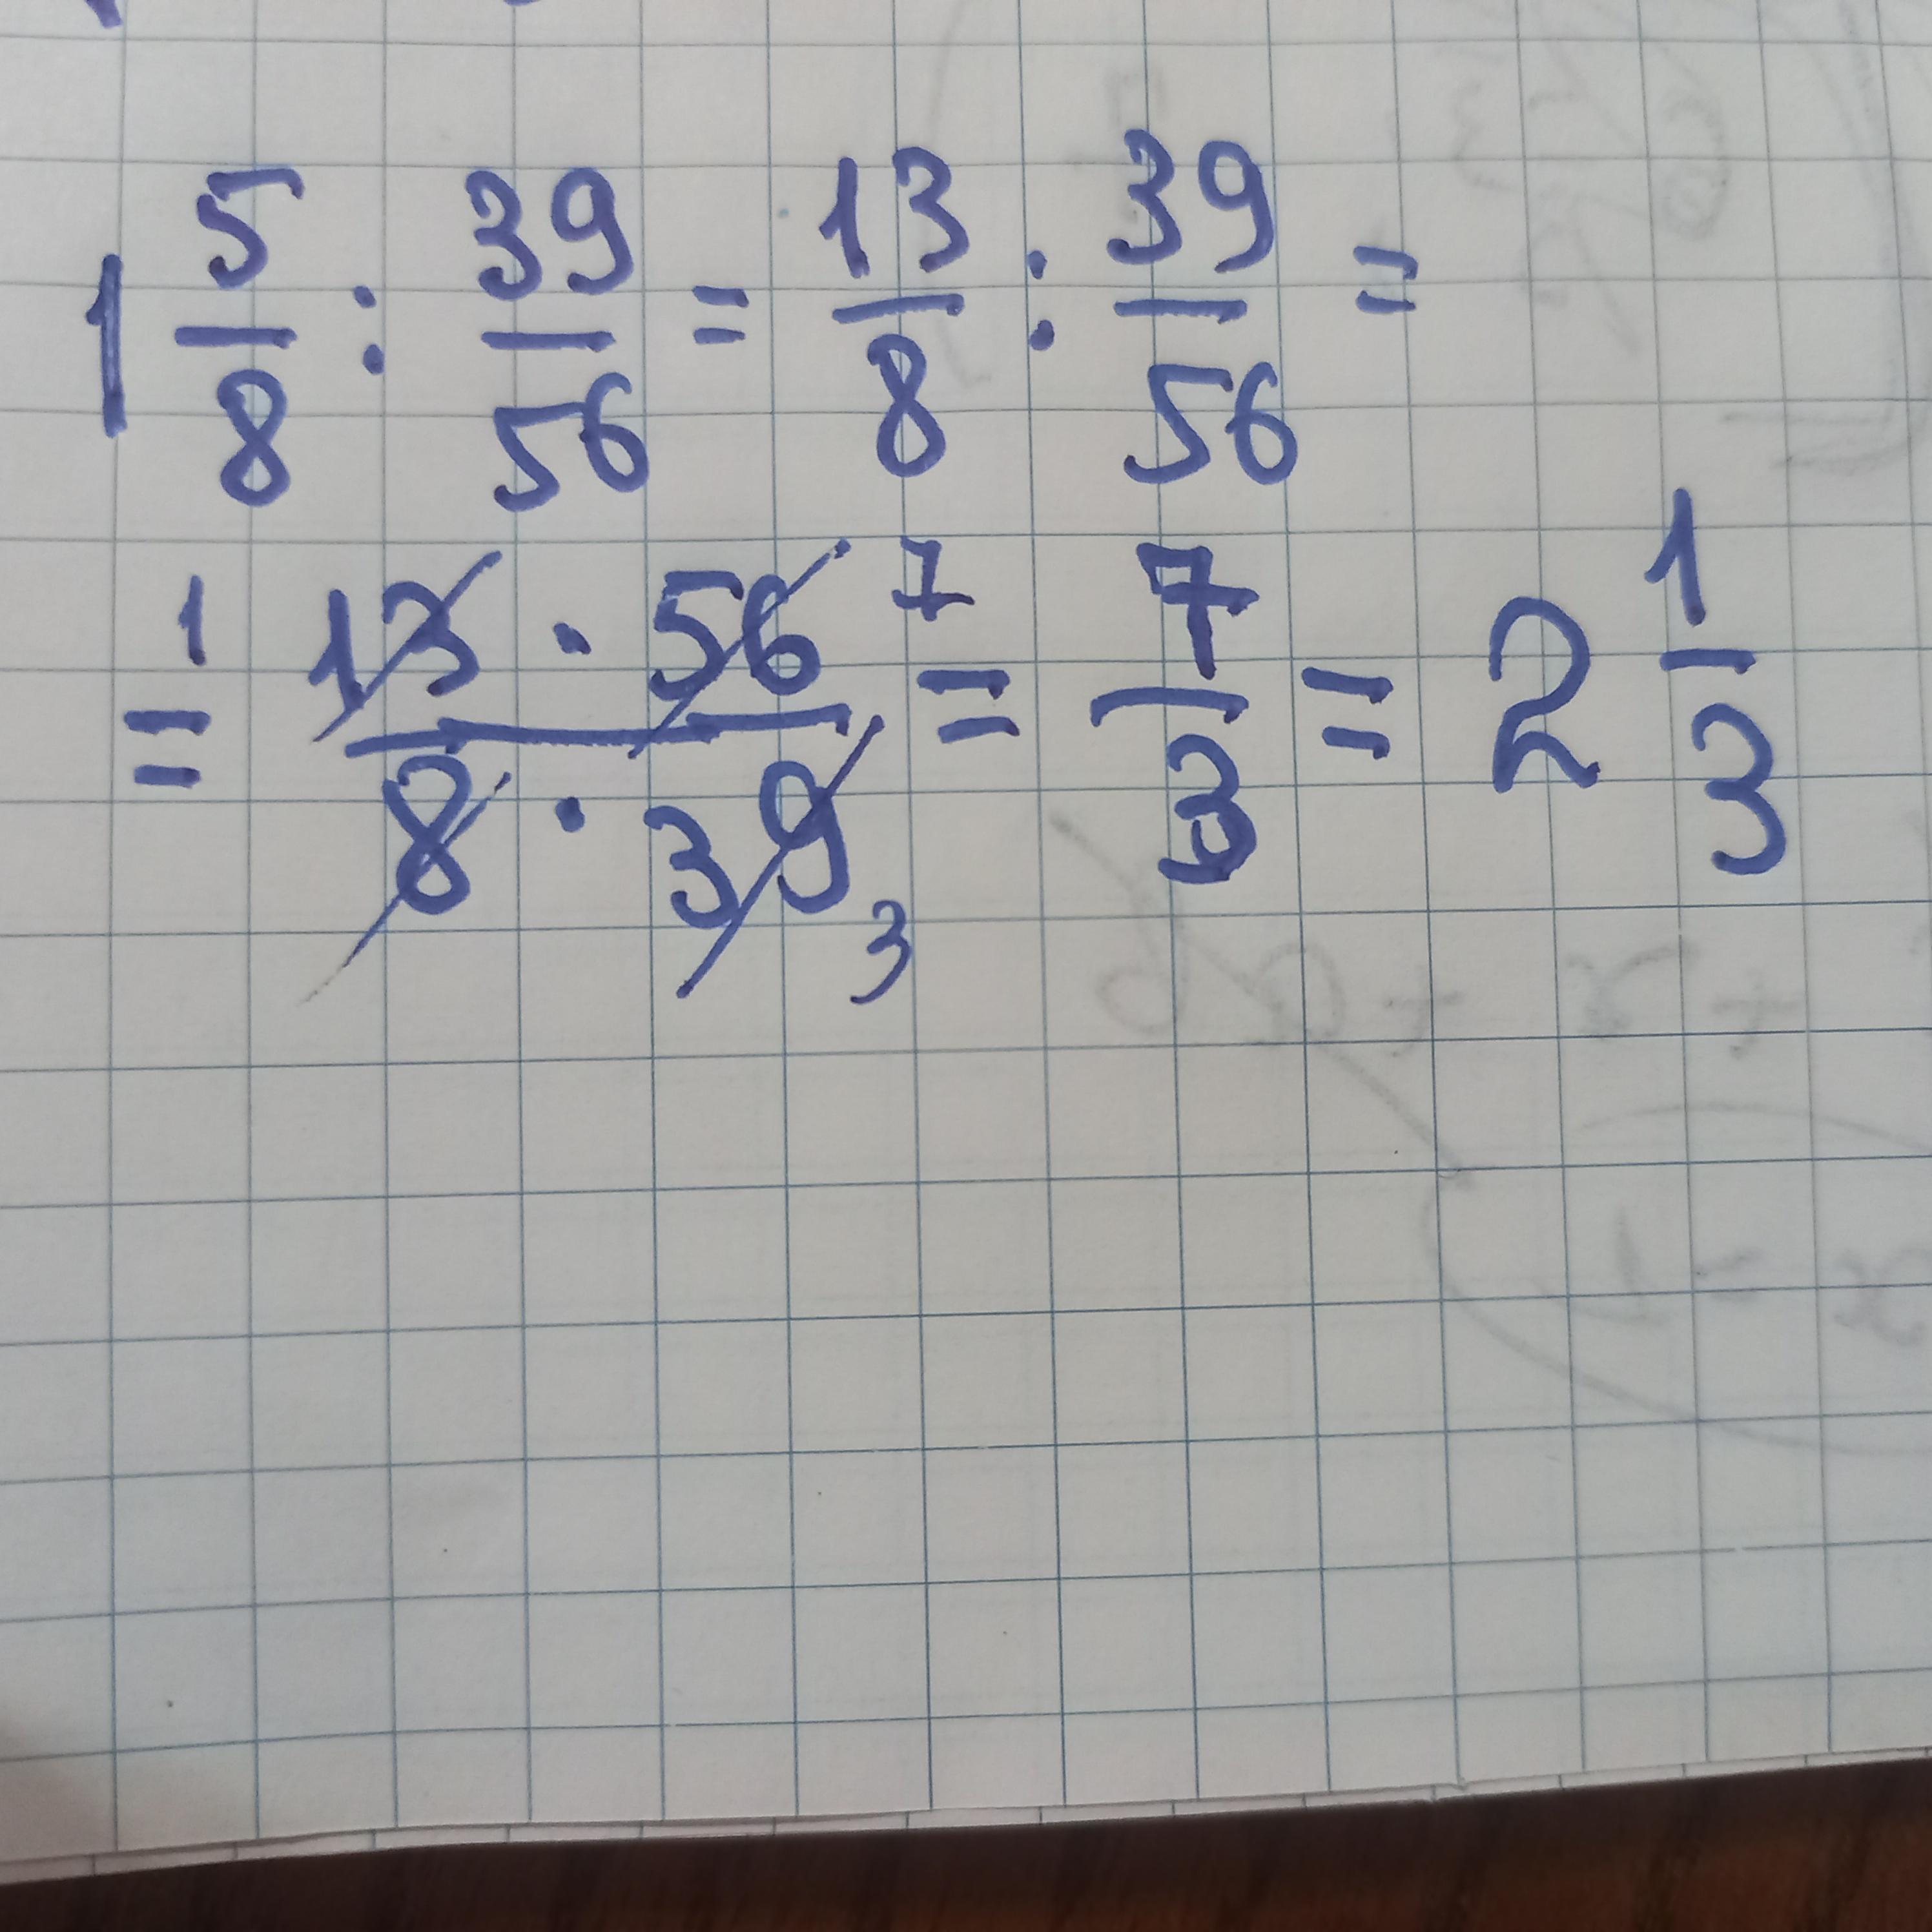 1 5/8 : 39/56 = 13/8 : 39/56 =
= 1 13 · 56 7 / 8 · 39 3 = 7/3 = 2 1/3